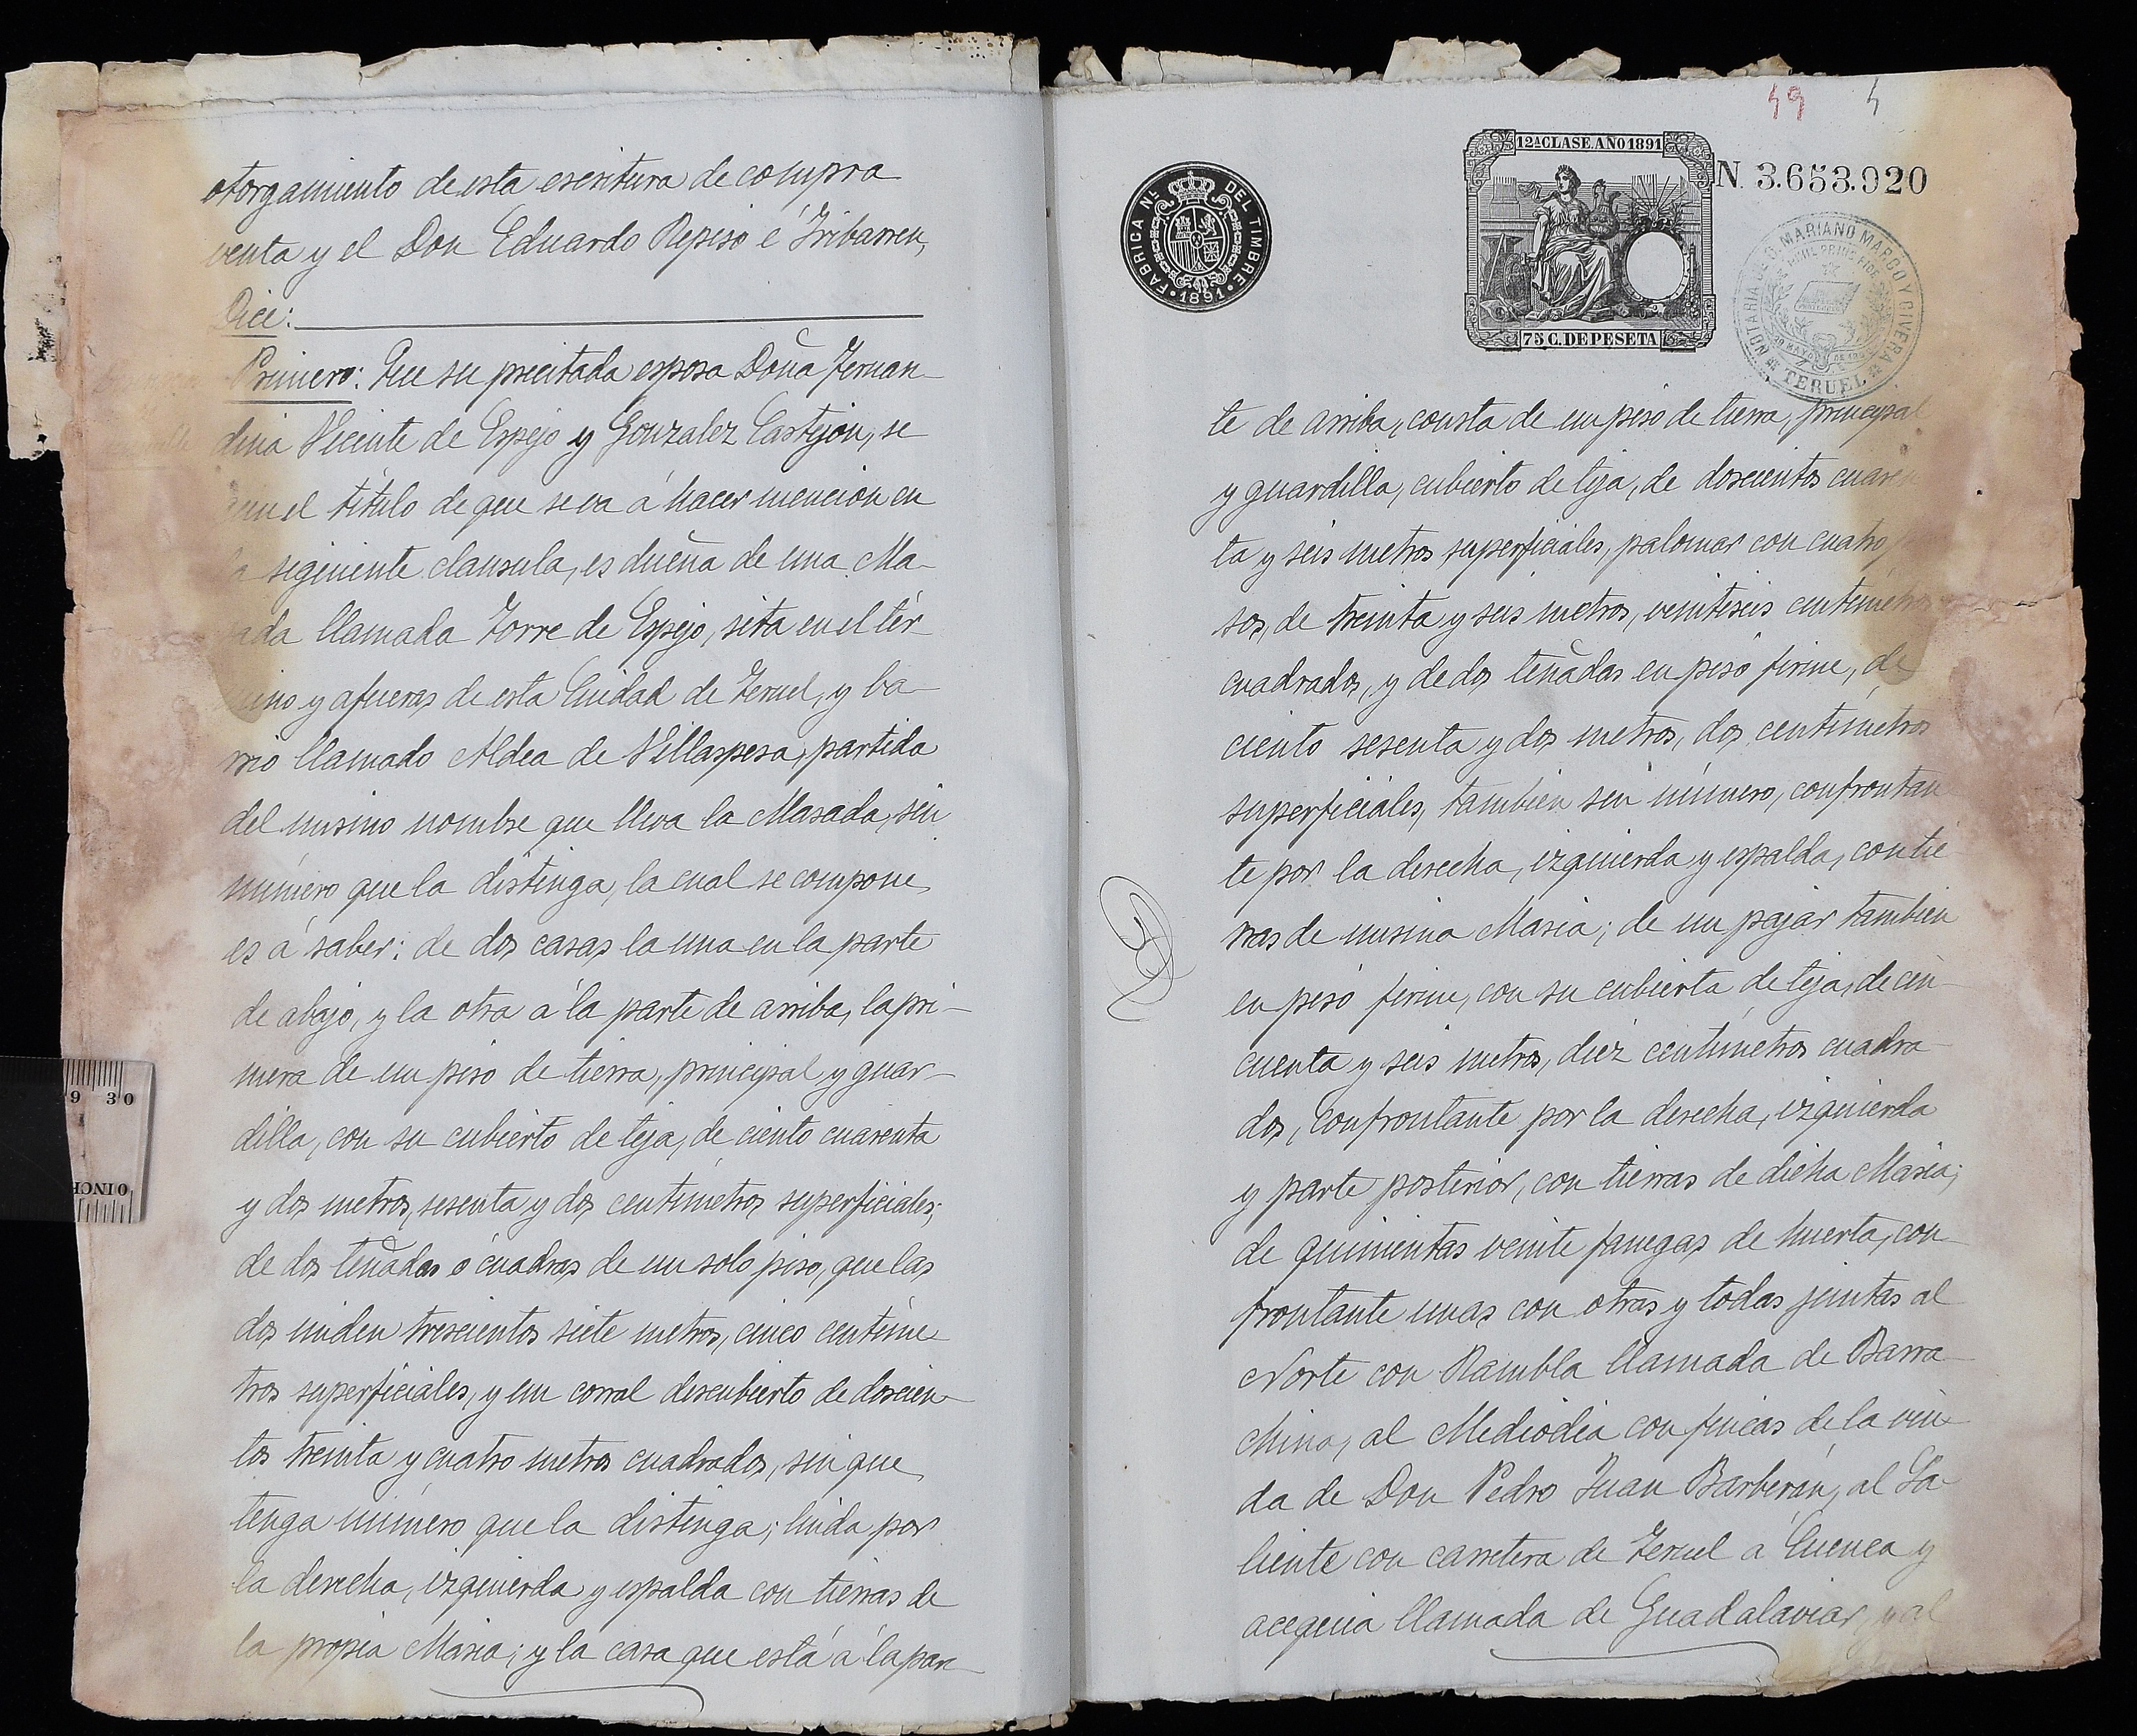 otorgamiento de esta escritura de compra
venta y el Don Eduardo Repiso é Iribarren,
Dice:
Primero: Que su precitada esposa Doña Fernan-
dina Vicente de Espejo y Gonzalez Castejon, se
gun el título de que se va á hacer mencion en
la siguiente clausula, es dueña de una Ma-
sada llamada Torre de Espejo, sita en el tér-
mino y afueras de esta Ciudad de Teruel, y ba-
rrio llamado Aldea de Villaspesa, partida
del mismo nombre que lleva la Masada, sin
número que la distinga, la cual se compone
es á saber: de dos casas la una en la parte
de abajo, y la otra á la parte de arriba, la pri-
mera de un piso de tierra, principal y guar-
dilla, con su cubierto de teja, de ciento cuarenta
y dos metros, sesenta y dos centímetros superficiales;
de dos teñadas ó cuadras de un solo piso, que las
dos miden trescientos siete metros, cinco centíme
tros superficiales, y un corral descubierto de doscien-
tos treinta y cuatro metros cuadrados, sin que
tenga número que la distinga; linda por
la derecha, izquierda y espalda con tierras de
la propia Masia; y la casa que está á la par-
49 4
FABRICA NL. DEL TIMBRE 1891
12ª CLASE. AÑO 1891
75 C. DE PESETA
N. 3.653.920
NOTARIA DE D. MARIANO MARCO Y CIVERA
TERUEL
te de arriba, consta de un piso de tierra, principal
y guardilla, cubierto de teja, de doscientos cuaren
ta y seis metros superficiales, palomar con cuatro
sos, de treinta y seis metros, veintiseis centímetros
cuadrados, y de dos teñadas en piso firme, de
ciento sesenta y dos metros, dos centímetros
superficiales, tambien sin número, confrontan
te por la derecha, izquierda y espalda, con tie
rras de misma Masia; de un pajar tambien
en piso firme, con su cubierta de teja, de cin-
cuenta y seis metros, diez centímetros cuadra-
dos, confrontante por la derecha, izquierda
y parte posterior, con tierras de dicha Masia;
de quinientas veinte fanegas de huerta, con-
frontante unas con otras y todas juntas al
Norte con Rambla llamada de Barra-
china, al Mediodia con fincas de la viu-
da de Don Pedro Juan Barberán, al Sa-
liente con carretera de Teruel á Cuenca y
acequia llamada de Guadalaviar, y al